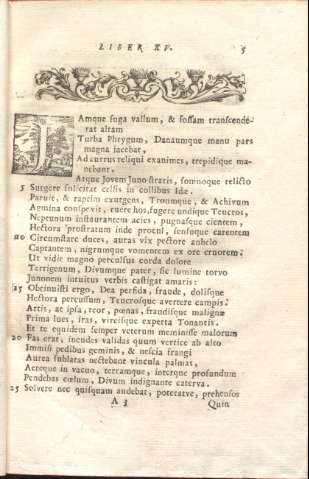 LIBER XV. 5
Jamque fuga vallum, & fossam transcenderat altam
Turba Phrygum, Danaumque manu pars
magna jacebat,
Ad currus reliqui exanimes, trepidique manebant.
Atque Jovem Juno stratis, somnoque relicto
5 Surgere solicitat celsis in collibus Idæ.
Paruit, & raptim exurgens, Troumque, & Achivum
Agmina conspexit, ruere hos, fugere undique Teucros,
Neptunum instaurantem acies, pugnasque cientem,
Hectora prostratum inde procul, sensuque carentem
10 Circumstare duces, auras vix pectore anhelo
Captantem, nigrumque vomentem ex ore cruorem.
Ut vidit magno perculsus corda dolore
Terrigenum, Divumque pater, sic lumine torvo
Junonem intuitus verbis castigat amaris:
15 Obtinuisti ergo, Dea perfida, fraude, dolisque
Hectora percussum, Teucrosque avertere campis.
Artis, at ipsa, reor, pœnas, fraudisque malignæ
Prima lues, iras, viresque experta Tonantis.
Et te equidem semper veterum meminisse malorum
20 Fas erat, incudes validas quum vertice ab alto
Immisi pedibus geminis, & nescia frangi
Aurea sublatas nectebant vincula palmas,
Aereque in vacuo, terramque, interque profundum
Pendebas cœlum, Divum indignante caterva.
25 Solvere nec quisquam audebat, poteratve, prehensos
A 3 Quin